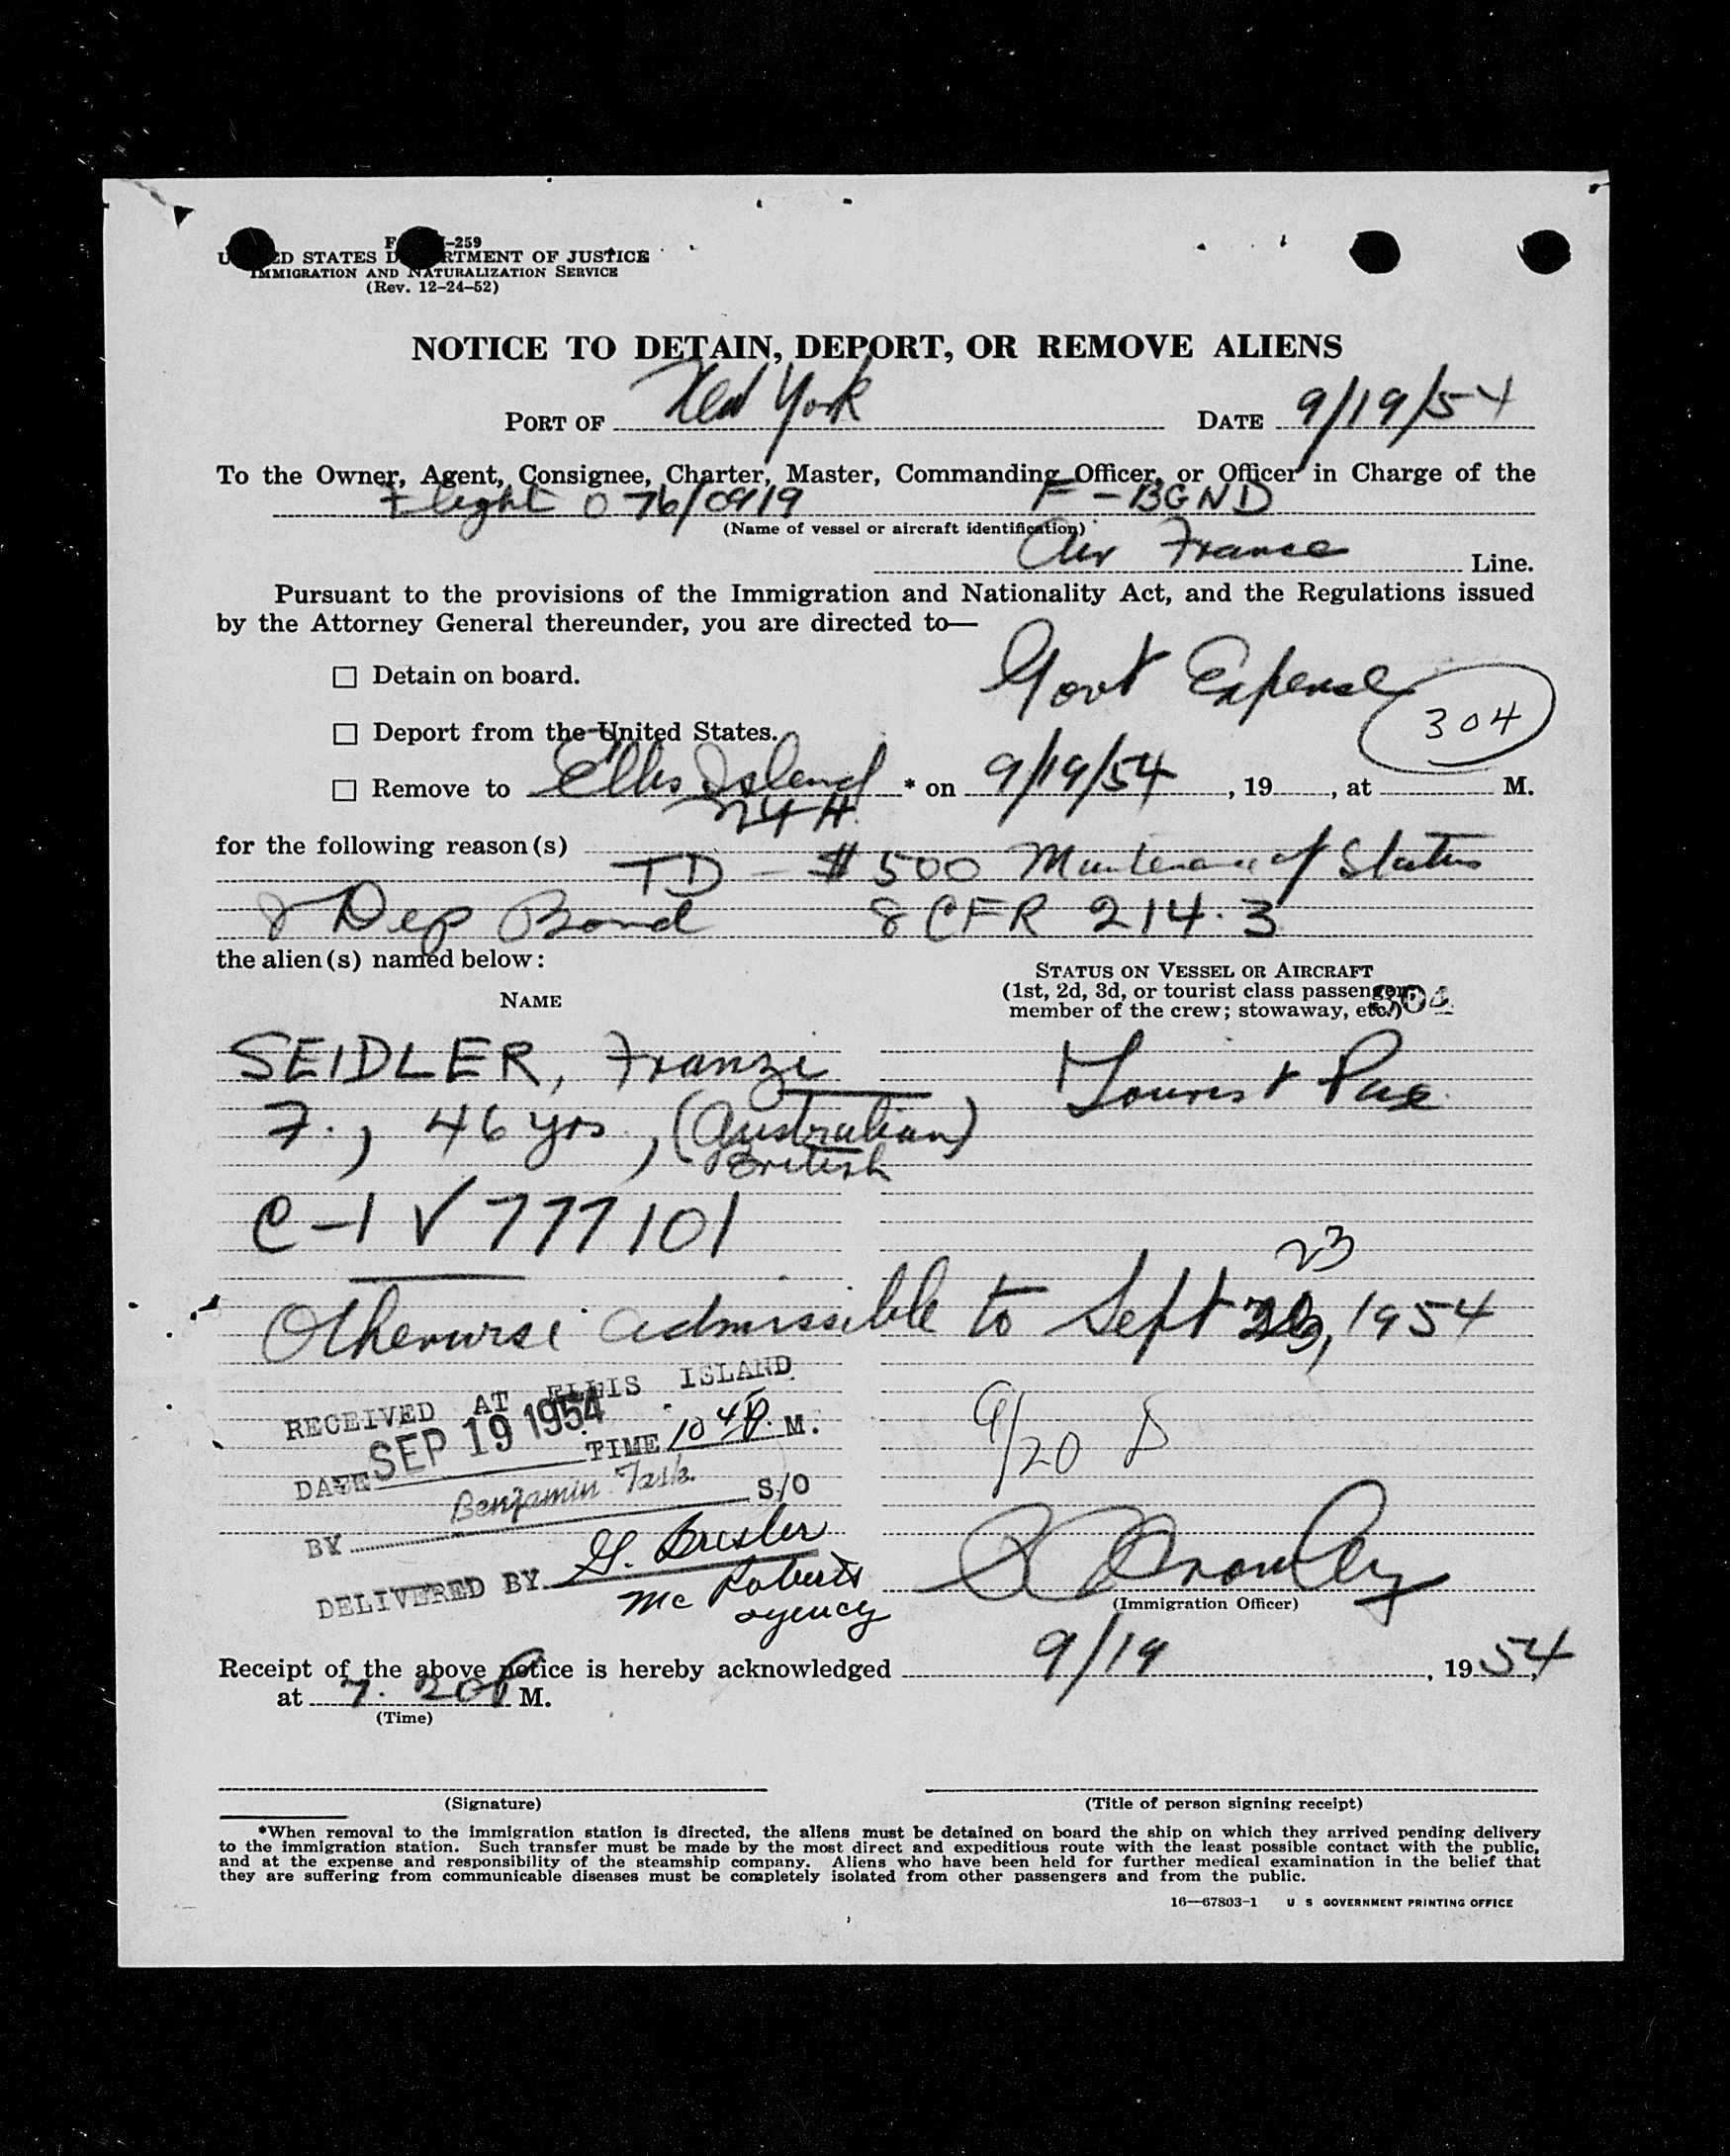 -259
ED STATES D RTMENT OF JUSTICE
IMMIGRATION AND NATURALIZATION SERVICE
(Rev. 12-24-52)
NOTICE TO DETAIN, DEPORT, OR REMOVE ALIENS
PORT OF New York DATE 9/19/54
To the Owner, Agent, Consignee, Charter, Master, Commanding Officer, or Officer in Charge of the
Flight 076/0919 F-BGND
(Name of vessel or aircraft identification)
Air France Line.
Pursuant to the provisions of the Immigration and Nationality Act, and the Regulations issued
by the Attorney General thereunder, you are directed to—
☐ Detain on board.
Govt Expense
☐ Deport from the United States.
304
☐ Remove to Ellis Island * on 9/19/54, 19, at M.
24 H
for the following reason(s)
TD - $500 Maintenance of Status
& Dep Bond 8 CFR 214.3
the alien(s) named below:
NAME
STATUS ON VESSEL OR AIRCRAFT
(1st, 2d, 3d, or tourist class passenger;
member of the crew; stowaway, etc.)
SEIDLER, Franzi
Tourist Pax
F., 46 yrs., (Australian)
British
C-1 √ 777101
23
Otherwise admissible to Sept, 1954
RECEIVED AT ELLIS ISLAND
DATE SEP 19 1954 TIME 10 45 P. M.
9/20
BY Benjamin Task S/O
DELIVERED BY G. Bresler
Mc Roberts
agency
(Immigration Officer)
Receipt of the above notice is hereby acknowledged 9/19, 1954
at 7.20 P M.
(Time)
(Signature)
(Title of person signing receipt)
*When removal to the immigration station is directed, the aliens must be detained on board the ship on which they arrived pending delivery
to the immigration station. Such transfer must be made by the most direct and expeditious route with the least possible contact with the public,
and at the expense and responsibility of the steamship company. Aliens who have been held for further medical examination in the belief that
they are suffering from communicable diseases must be completely isolated from other passengers and from the public.
16—67803-1 U S GOVERNMENT PRINTING OFFICE